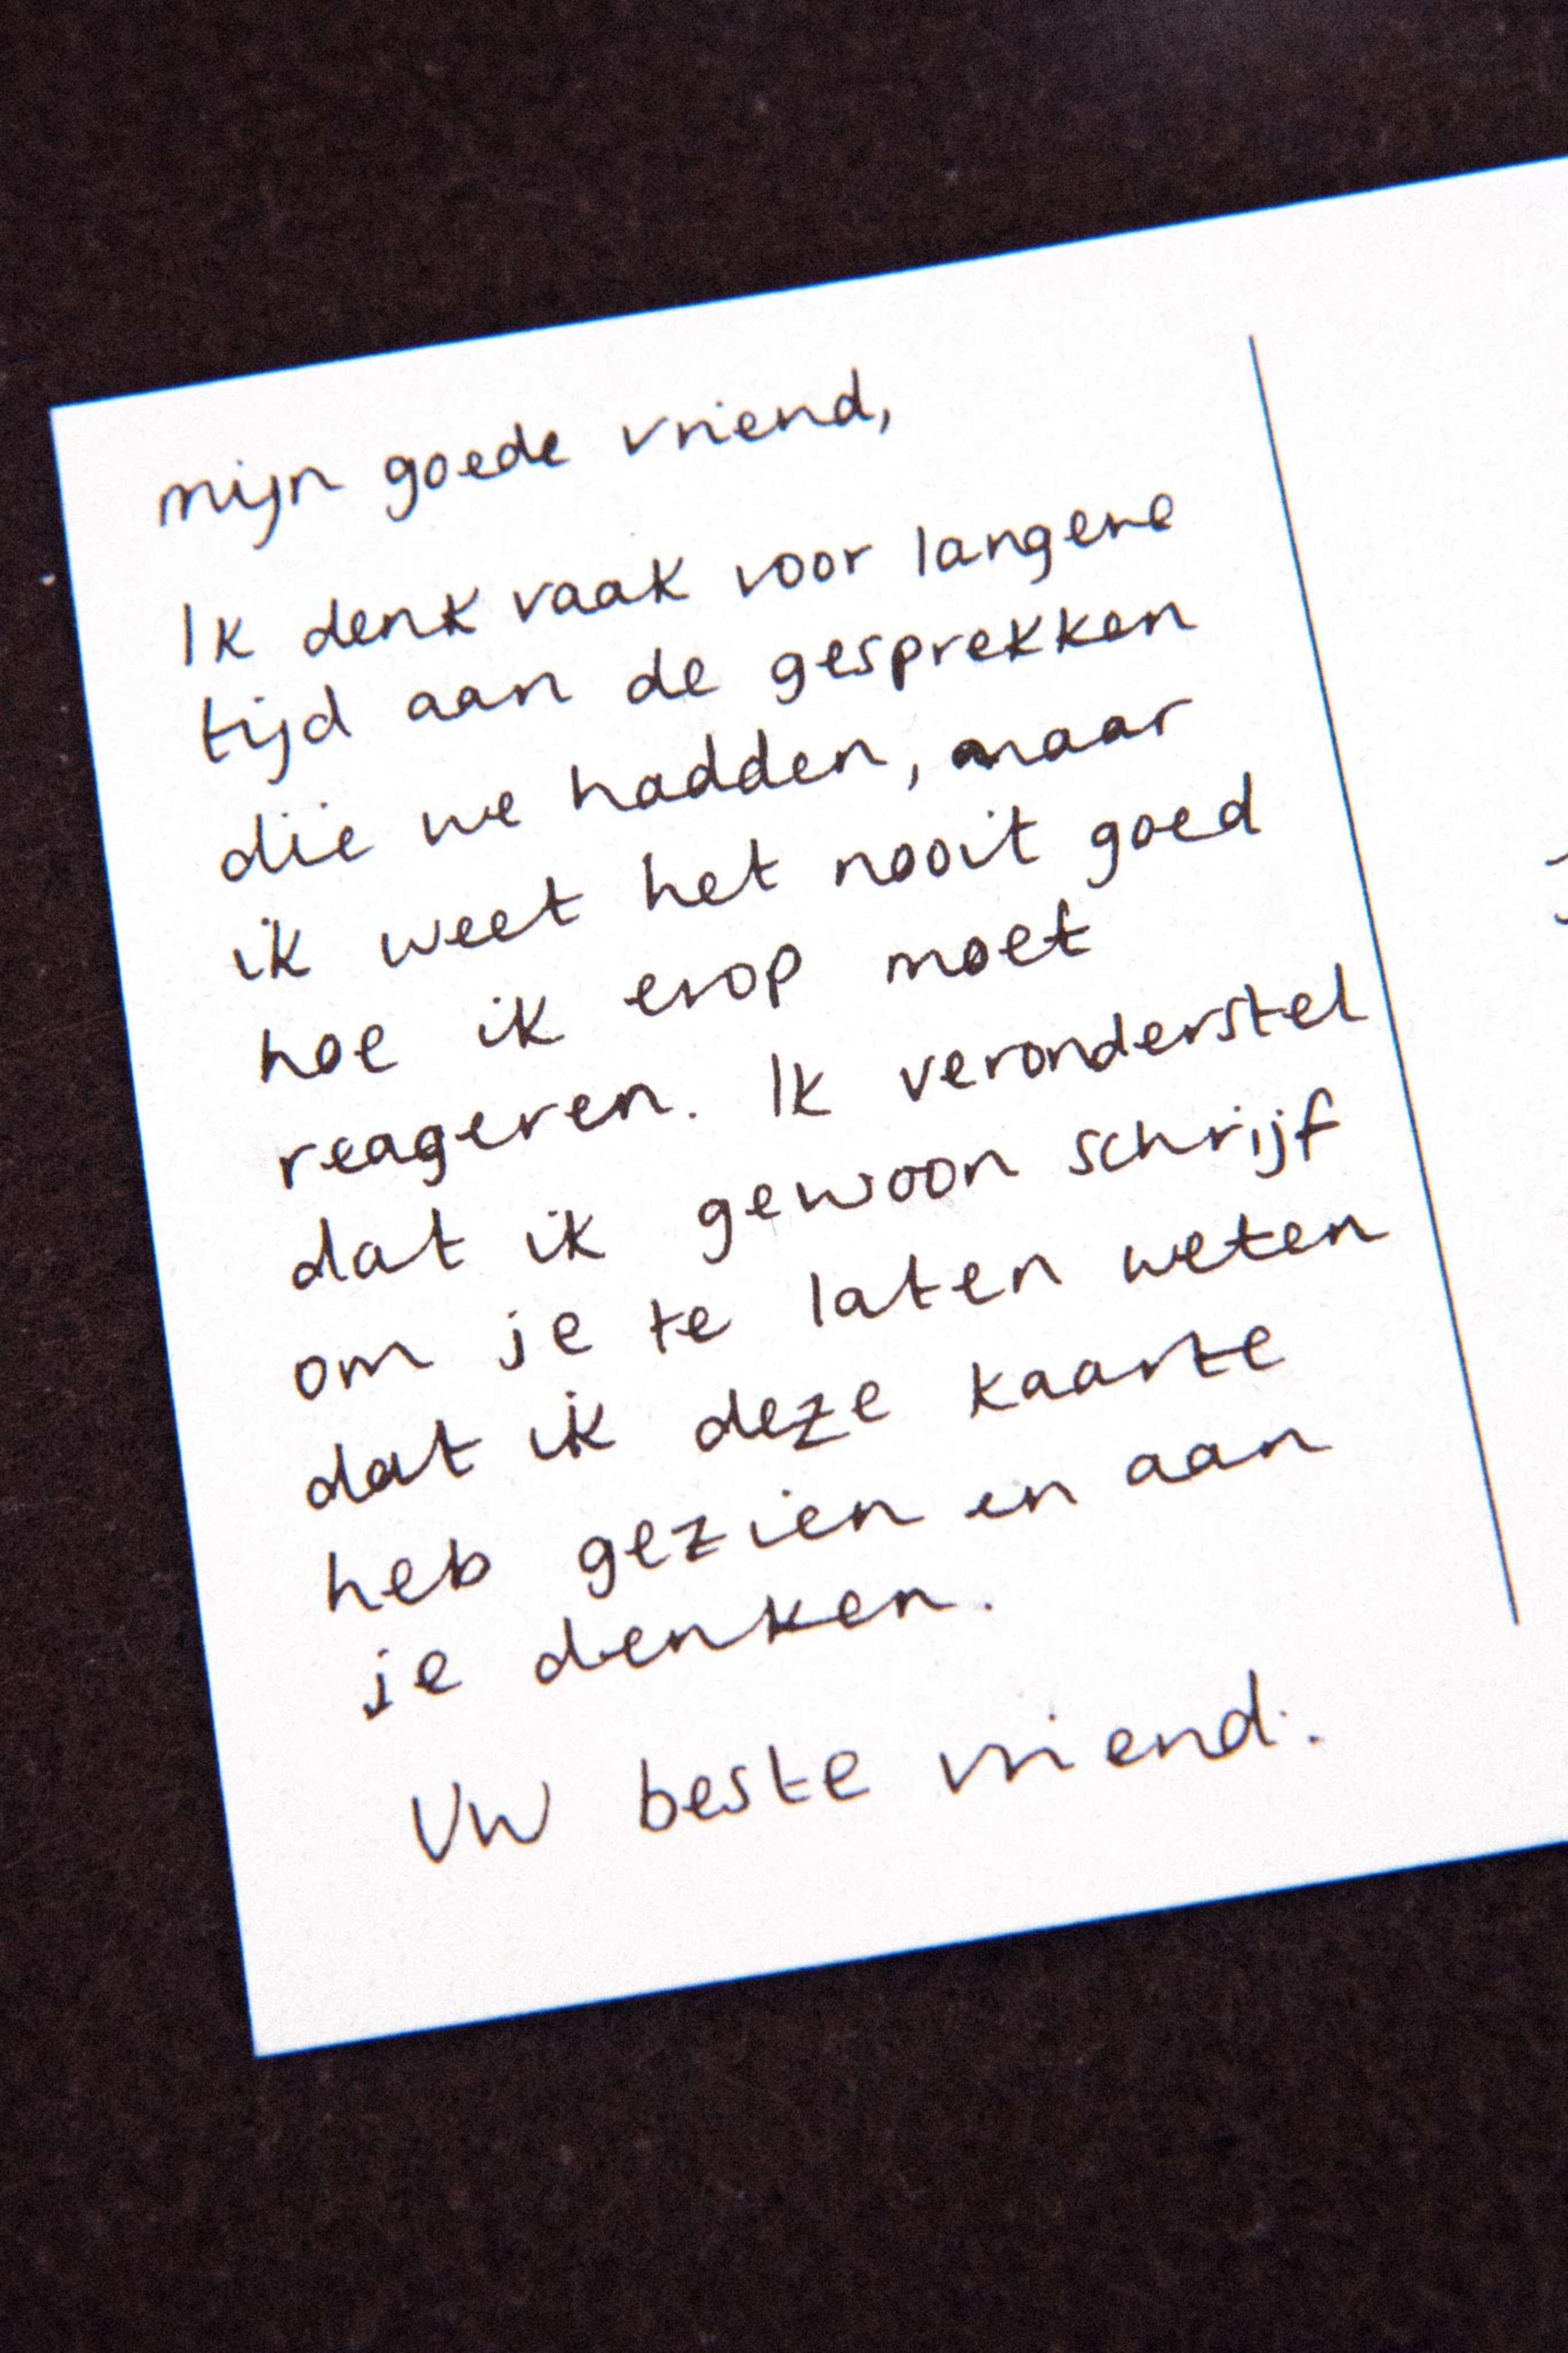 mijn goede vriend,
Ik denk vaak voor langere
tijd aan de gesprekken
die we hadden, maar
ik weet het nooit goed
hoe ik erop moet
reageren. Ik veronderstel
dat ik gewoon schrijf
om je te laten weten
dat ik deze kaarte
heb gezien en aan
je denken.
Uw beste vriend.